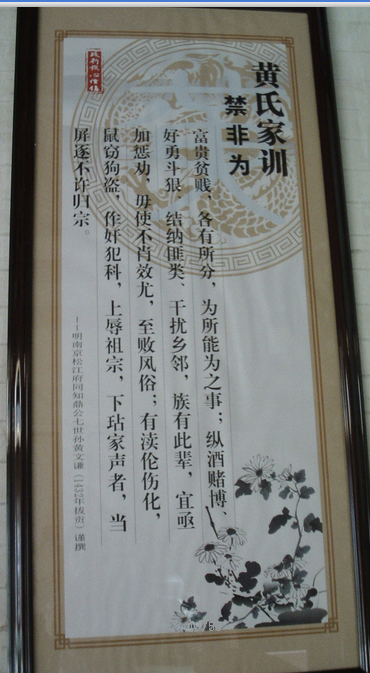 黄氏家训
禁非为
富贵贫贱，各有所分，为所能为之事；纵酒赌博、
好勇斗狠、结纳匪类、干扰乡邻，族有此辈，宜亟
加惩劝，毋使不肖效尤，至败风俗；有渎伦伤化，
鼠窃狗盗，作奸犯科，上辱祖宗，下玷家声者，当
屏逐不许归宗。
——明南京松江府同知鼎公七世孙黄文谦（1432年拔贡）谨撰